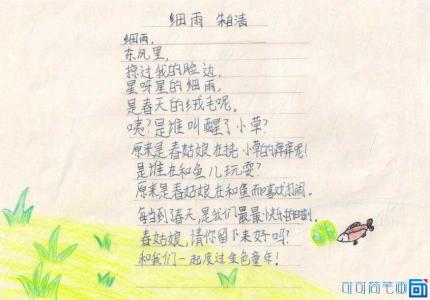 细雨 朱自清
细雨，
东风里，
掠过我的脸边，
星呀星的细雨，
是春天的绒毛呢。
咦？是谁叫醒了小草？
原来是春姑娘在挠小草的痒痒呢！
是谁在和鱼儿玩耍？
原来是春姑娘在和鱼而嬉戏打闹。
每当到春天，是我们最最快乐的时刻。
春姑娘，请你留下来好吗？
和我们一起度过金色童年！
可可简笔画